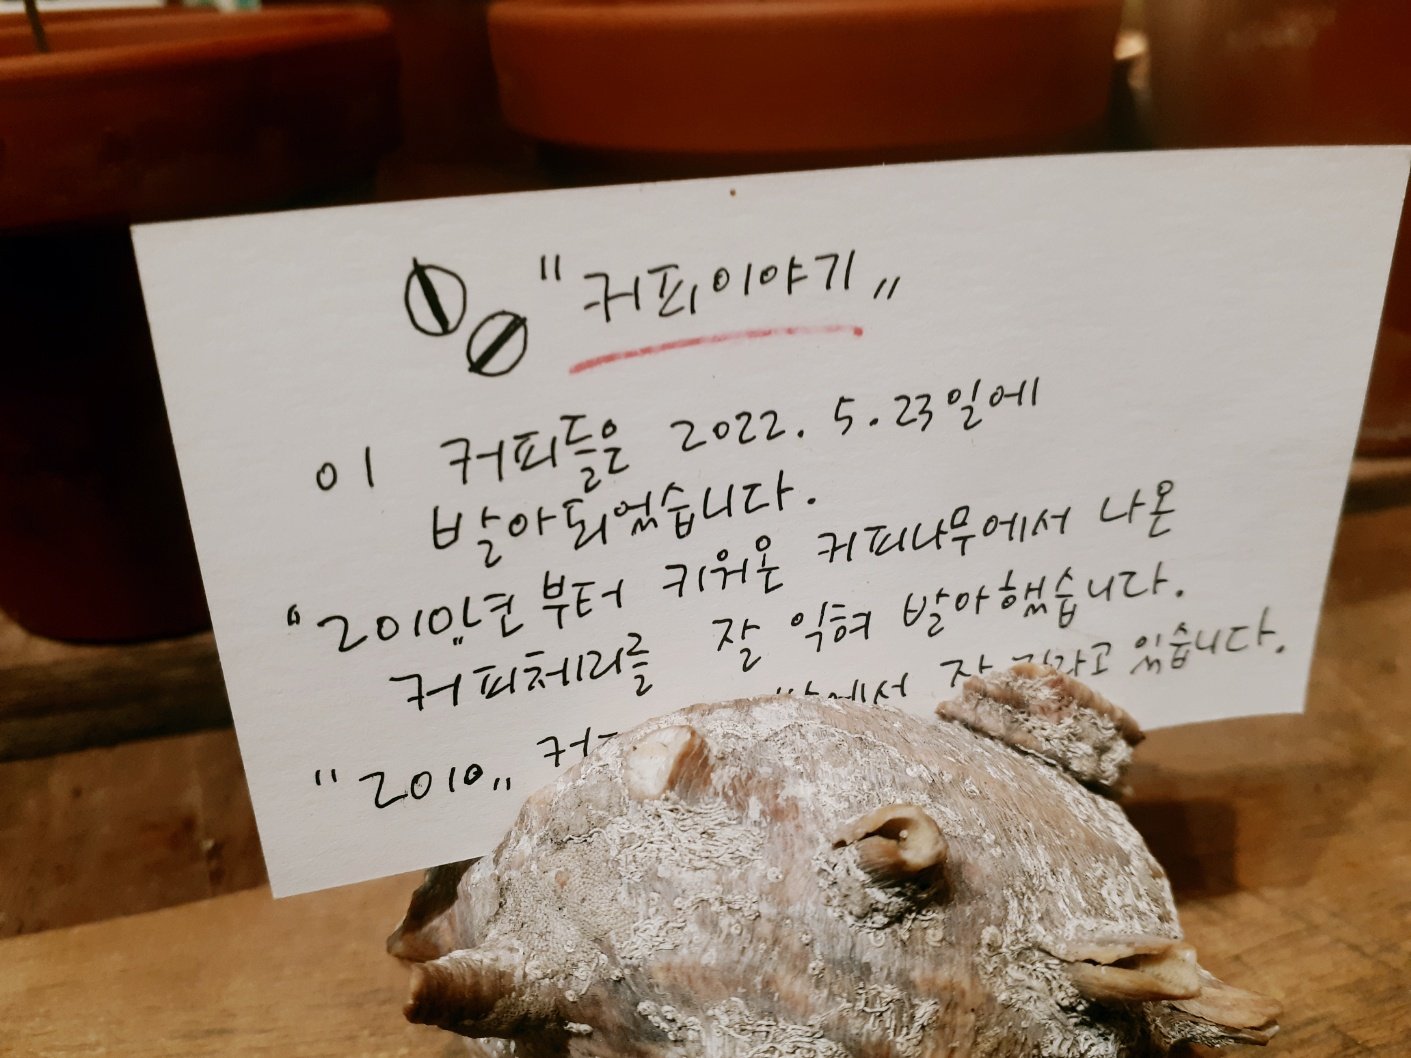 "커피이야기"
이 커피들은 2022. 5. 23일에
발아되었습니다.
"2010"년부터 키워온 커피나무에서 나온
커피체리를 잘 익혀 발아했습니다.
"2010" 고 있습니다.